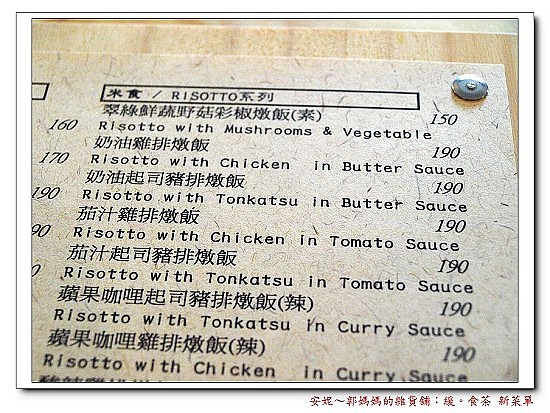 米食 / RISOTTO系列
翠綠鮮蔬野菇彩椒燉飯(素) 150
160 Risotto with Mushrooms & Vegetable
奶油雞排燉飯 190
170 Risotto with Chicken in Butter Sauce
奶油起司豬排燉飯 190
190 Risotto with Tonkatsu in Butter Sauce
茄汁雞排燉飯 190
Risotto with Chicken in Tomato Sauce
茄汁起司豬排燉飯 190
Risotto with Tonkatsu in Tomato Sauce
蘋果咖哩起司豬排燉飯(辣) 190
Risotto with Tonkatsu in Curry Sauce
蘋果咖哩雞排燉飯(辣) 190
Risotto with Chicken in Curry Sauce
安妮～郭媽媽的雜貨舖：緩。食茶 新菜單